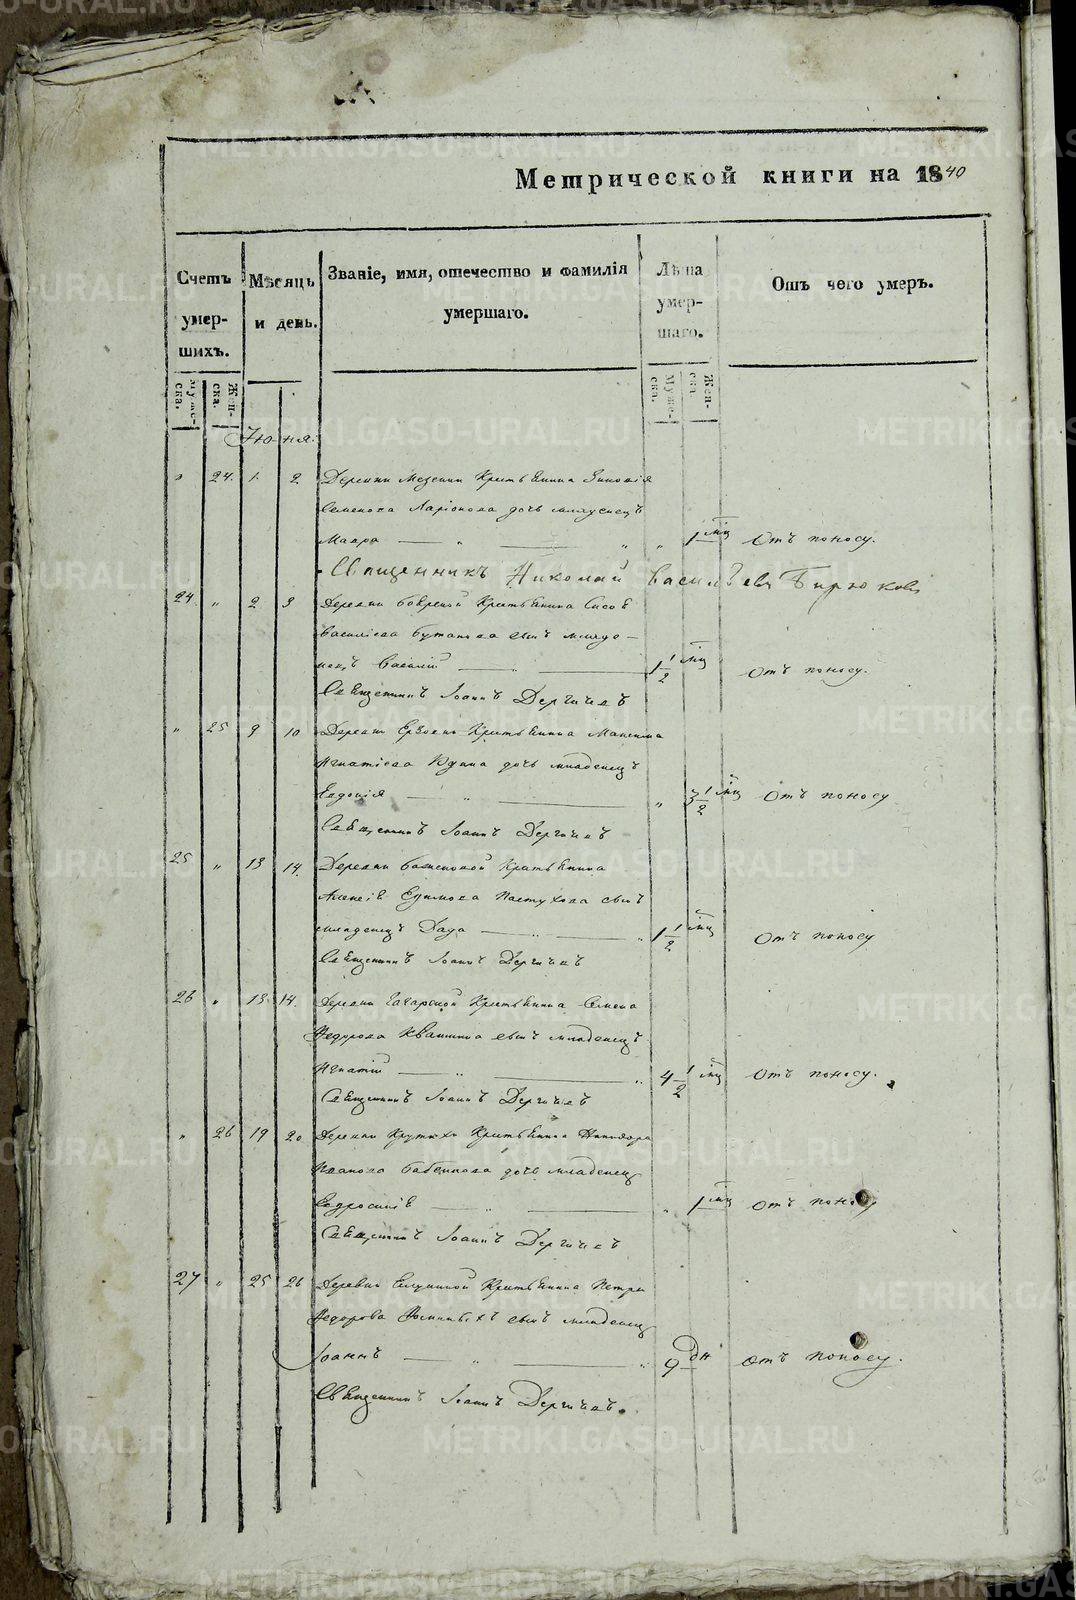 Метрической книги на 1840
Счетъ умершихъ.
Мѣсяцъ и день.
Званіе, имя, отечество и фамилія умершаго.
Лѣта умершаго.
Отъ чего умеръ.
Муже-ска.
Жен-ска.
Муже-ска.
Жен-ска.
Июня.
" 24. 1. 2 Деревни Мезенки Крестьянина Зиновія
Семенова Ларіонова дочь младенецъ
Мавра " " " 1 мц Отъ поносу.
Священникъ Николай Васильевъ Бирюковъ
24 " 2 3 Деревни Боярской Крестьянина
Василіева сынъ младе-
нецъ Василій " 1 1/2 мц Отъ поносу.
Священникъ Іоаннъ Дергачевъ
" 25 9 10 Деревни Крестьянина Максима
Игнатіева Юдина дочь младенецъ
Евдокія " " 3 1/2 мц Отъ поносу
Священникъ Іоаннъ Дергачевъ
25 " 13 14. Деревни Крестьянина
Алексія Ефимова Пастухова сынъ
младенецъ " " 1 1/2 мц Отъ поносу
Священникъ Іоаннъ Дергачевъ
26 " 13 14. Деревни Крестьянина Семена
Федорова Квашнина сынъ младенецъ
Игнатій " " 4 1/2 мц Отъ поносу.
Священникъ Іоаннъ Дергачевъ
" 26 19 20 Деревни Крутихи Крестьянина Никифора
Иванова дочь младенецъ
" " 1 мц Отъ поносу
Священникъ Іоаннъ Дергачевъ
27 " 25 26 Деревни Крестьянина Петра
Федорова сынъ младенецъ
Іоаннъ " " 9 дн Отъ поносу.
Священникъ Іоаннъ Дергачевъ.
METRIKI.GASO-URAL.RU